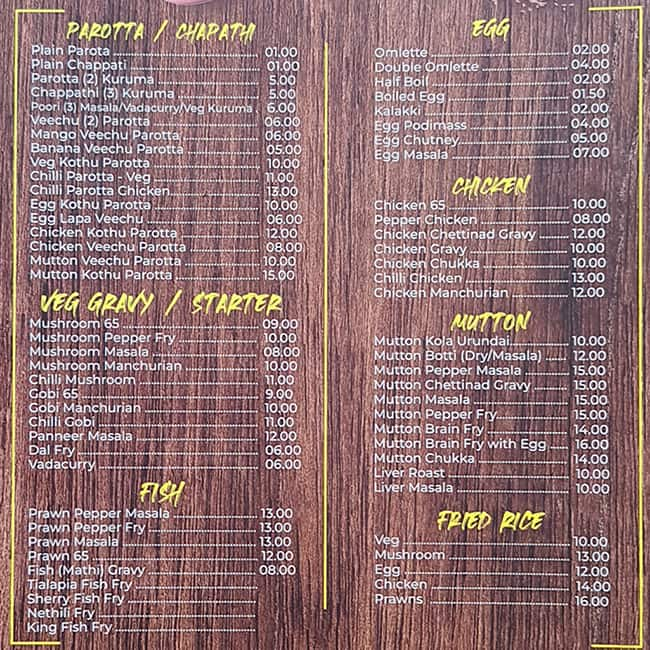 PAROTTA / CHAPATHI
Plain Parota 01.00
Plain Chappati 01.00
Parotta (2) Kuruma 5.00
Chappathi (3) Kuruma 5.00
Poori (3) Masala/Vadacurry/Veg Kuruma 6.00
Veechu (2) Parotta 06.00
Mango Veechu Parotta 06.00
Banana Veechu Parotta 05.00
Veg Kothu Parotta 10.00
Chilli Parotta - Veg 11.00
Chilli Parotta Chicken 13.00
Egg Kothu Parotta 10.00
Egg Lapa Veechu 06.00
Chicken Kothu Parotta 12.00
Chicken Veechu Parotta 08.00
Mutton Veechu Parotta 10.00
Mutton Kothu Parotta 15.00
VEG GRAVY / STARTER
Mushroom 65 09.00
Mushroom Pepper Fry 10.00
Mushroom Masala 08.00
Mushroom Manchurian 10.00
Chilli Mushroom 11.00
Gobi 65 9.00
Gobi Manchurian 10.00
Chilli Gobi 11.00
Panneer Masala 12.00
Dal Fry 06.00
Vadacurry 06.00
FISH
Prawn Pepper Masala 13.00
Prawn Pepper Fry 13.00
Prawn Masala 13.00
Prawn 65 12.00
Fish (Mathi) Gravy 08.00
Tialapia Fish Fry
Sherry Fish Fry
Nethili Fry
King Fish Fry
EGG
Omlette 02.00
Double Omlette 04.00
Half Boil 02.00
Boiled Egg 01.50
Kalakki 02.00
Egg Podimass 04.00
Egg Chutney 05.00
Egg Masala 07.00
CHICKEN
Chicken 65 10.00
Pepper Chicken 08.00
Chicken Chettinad Gravy 12.00
Chicken Gravy 10.00
Chicken Chukka 10.00
Chilli Chicken 13.00
Chicken Manchurian 12.00
MUTTON
Mutton Kola Urundai 10.00
Mutton Botti (Dry/Masala) 12.00
Mutton Pepper Masala 15.00
Mutton Chettinad Gravy 15.00
Mutton Masala 15.00
Mutton Pepper Fry 15.00
Mutton Brain Fry 14.00
Mutton Brain Fry with Egg 16.00
Mutton Chukka 14.00
Liver Roast 10.00
Liver Masala 10.00
FRIED RICE
Veg 10.00
Mushroom 13.00
Egg 12.00
Chicken 14.00
Prawns 16.00